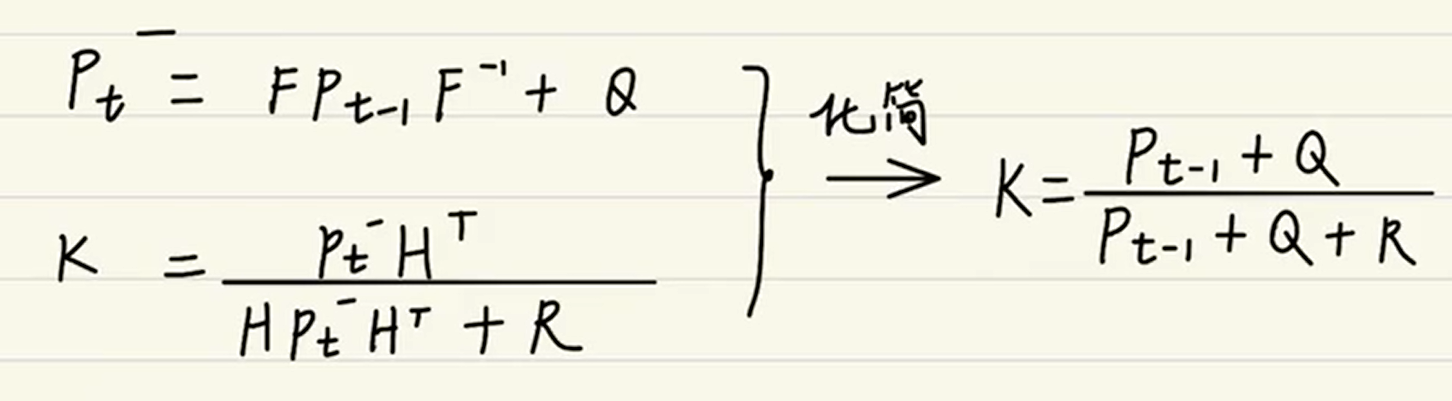 P_t^- = F P_{t-1} F^{-1} + Q
K = \frac{P_t^- H^T}{H P_t^- H^T + R}
化简
K = \frac{P_{t-1} + Q}{P_{t-1} + Q + R}